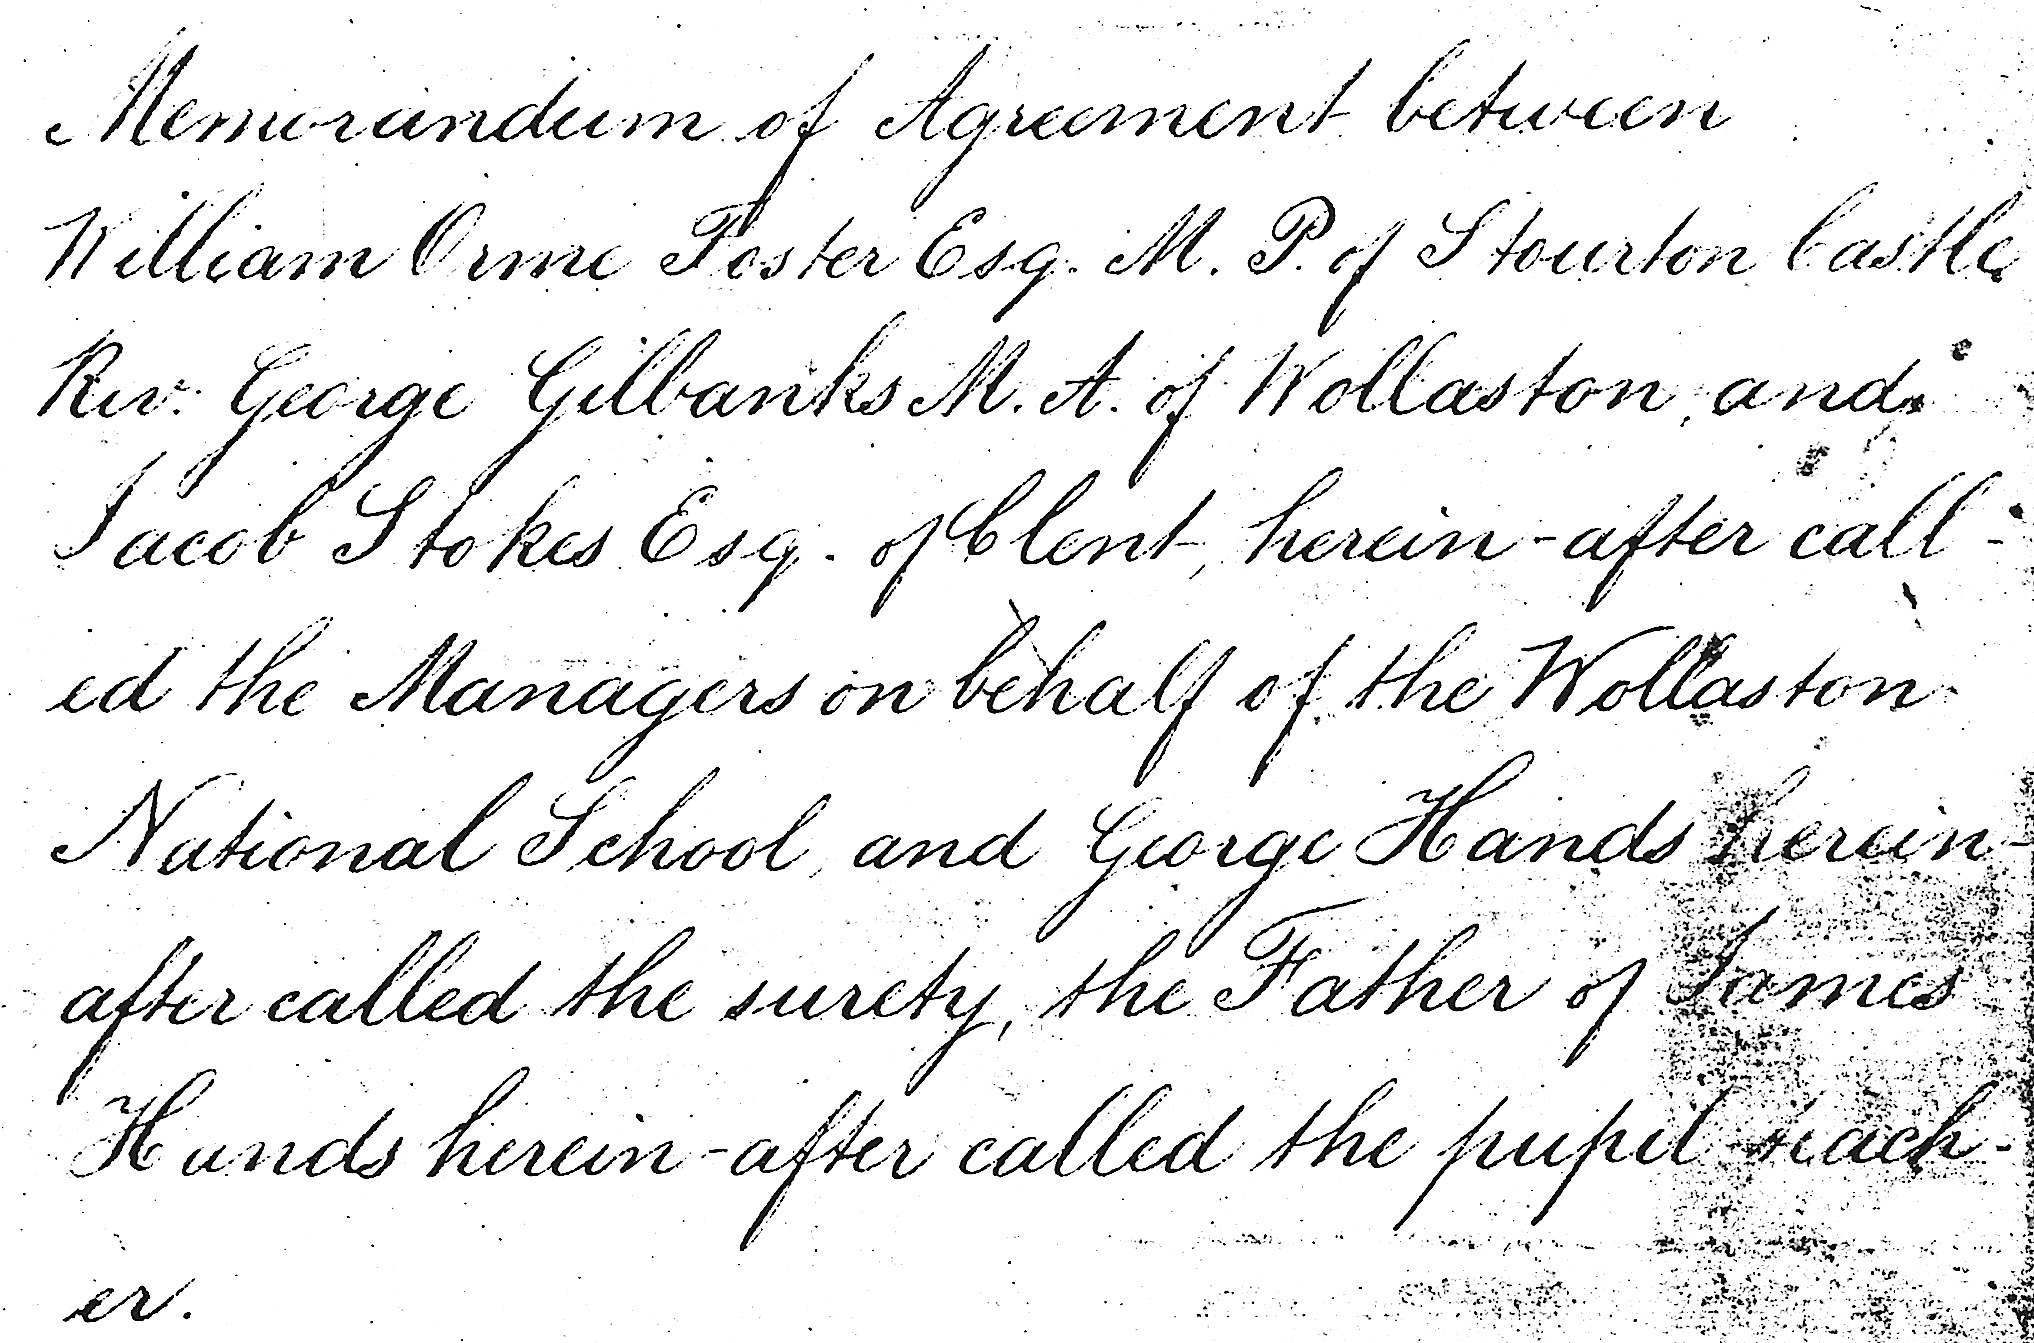 Memorandum of Agreement between
William Orme Foster Esq. M. P. of Stourton Castle
Rev. George Gilbanks M. A. of Wollaston, and
Jacob Stokes Esq. of Clent, herein-after call-
ed the Managers on behalf of the Wollaston
National School, and George Hands herein-
after called the surety, the Father of James
Hands herein-after called the pupil-teach-
er.